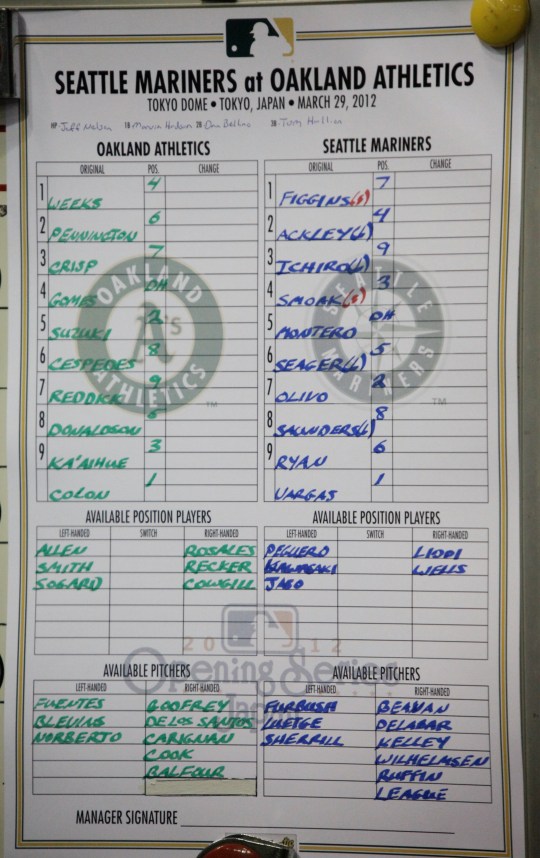 SEATTLE MARINERS at OAKLAND ATHLETICS
TOKYO DOME • TOKYO, JAPAN • MARCH 29, 2012
HP- Jeff Nelson 1B Marvin Hudson 2B Dan Bellino 3B
OAKLAND ATHLETICS
ORIGINAL POS. CHANGE
1 WEEKS 4
2 PENNINGTON 6
3 CRISP 7
4 GOMES DH
5 SUZUKI 2
6 CESPEDES 8
7 REDDICK 9
8 DONALDSON 5
9 KA'AIHUE 3
COLON 1
OAKLAND A's ATHLETICS TM
SEATTLE MARINERS
ORIGINAL POS. CHANGE
1 FIGGINS(S) 7
2 ACKLEY(L) 4
3 ICHIRO(L) 9
4 SMOAK(S) 3
5 MONTERO DH
6 SEAGER(L) 5
7 OLIVO 2
8 SAUNDERS(L) 8
9 RYAN 6
VARGAS 1
SEATTLE MARINERS TM
AVAILABLE POSITION PLAYERS
LEFT-HANDED SWITCH RIGHT-HANDED
ALLEN ROSALES
SMITH RECKER
SOGARD COWGILL
AVAILABLE POSITION PLAYERS
LEFT-HANDED SWITCH RIGHT-HANDED
PEGUERO LIDDI
KAWASAKI WELLS
JASO
2012
Opening Series
Japan
AVAILABLE PITCHERS
LEFT-HANDED RIGHT-HANDED
FUENTES GODFREY
BLEVINS DE LOS SANTOS
NORBERTO CARIGNAN
COOK
BALFOUR
AVAILABLE PITCHERS
LEFT-HANDED RIGHT-HANDED
FURBUSH BEAVAN
LUETGE DELABAR
SHERRILL KELLEY
WILHELMSEN
RUFFIN
LEAGUE
MANAGER SIGNATURE